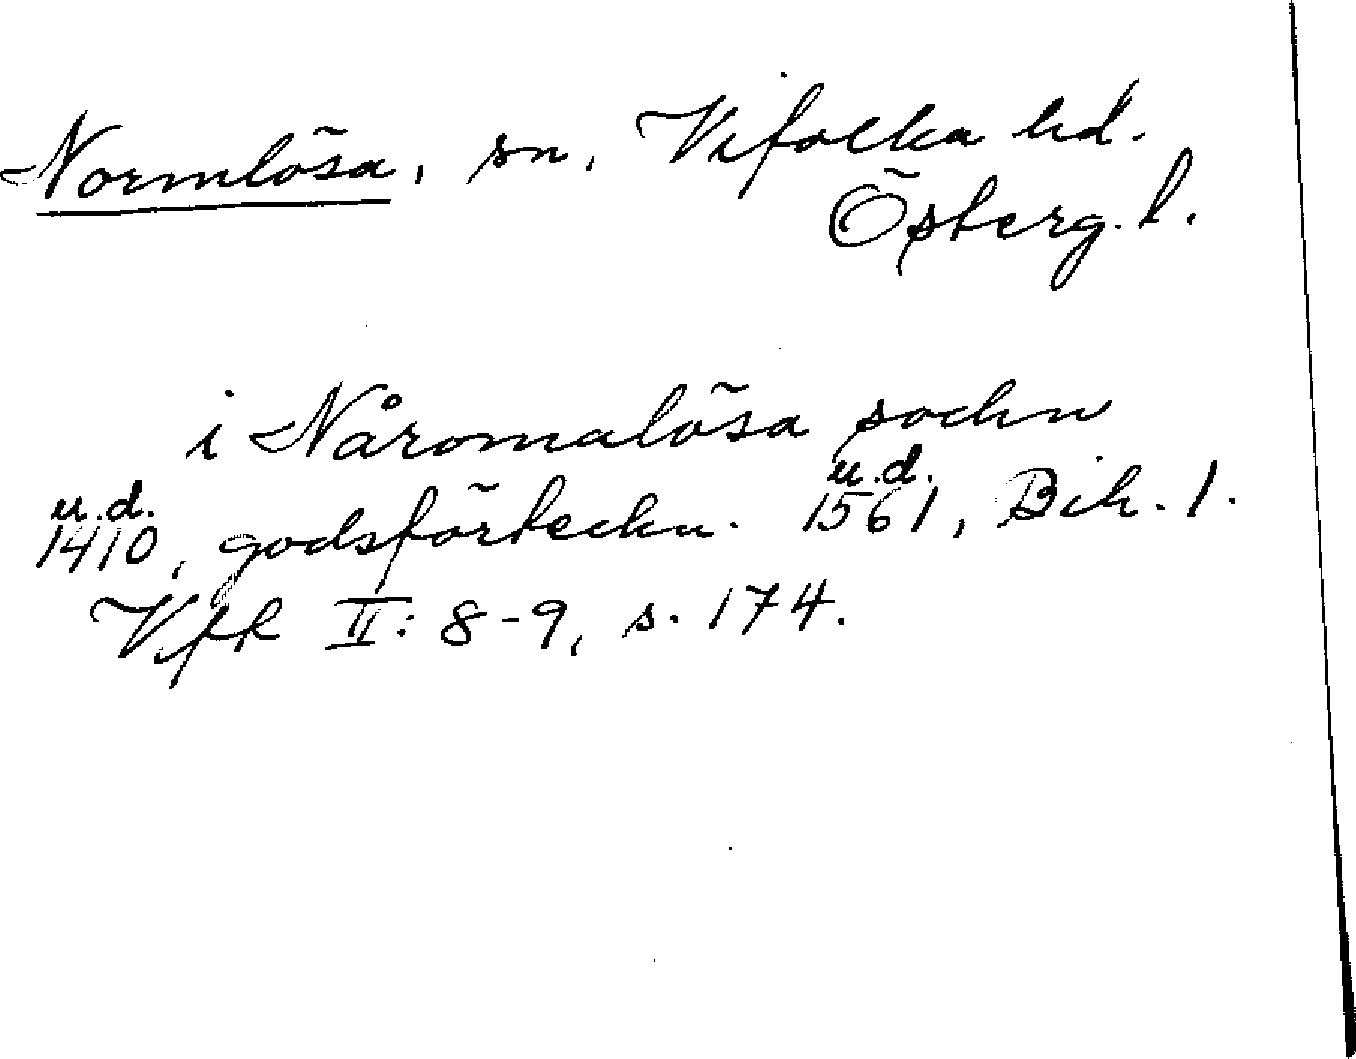 Normlösa, sn, Vifolka hd.
Östberg. l.
i Nåromalösa sochn
u.d. u.d.
1410, godsförteckn. 1561, Bih. 1.
VfK II: 8-9, s. 174.